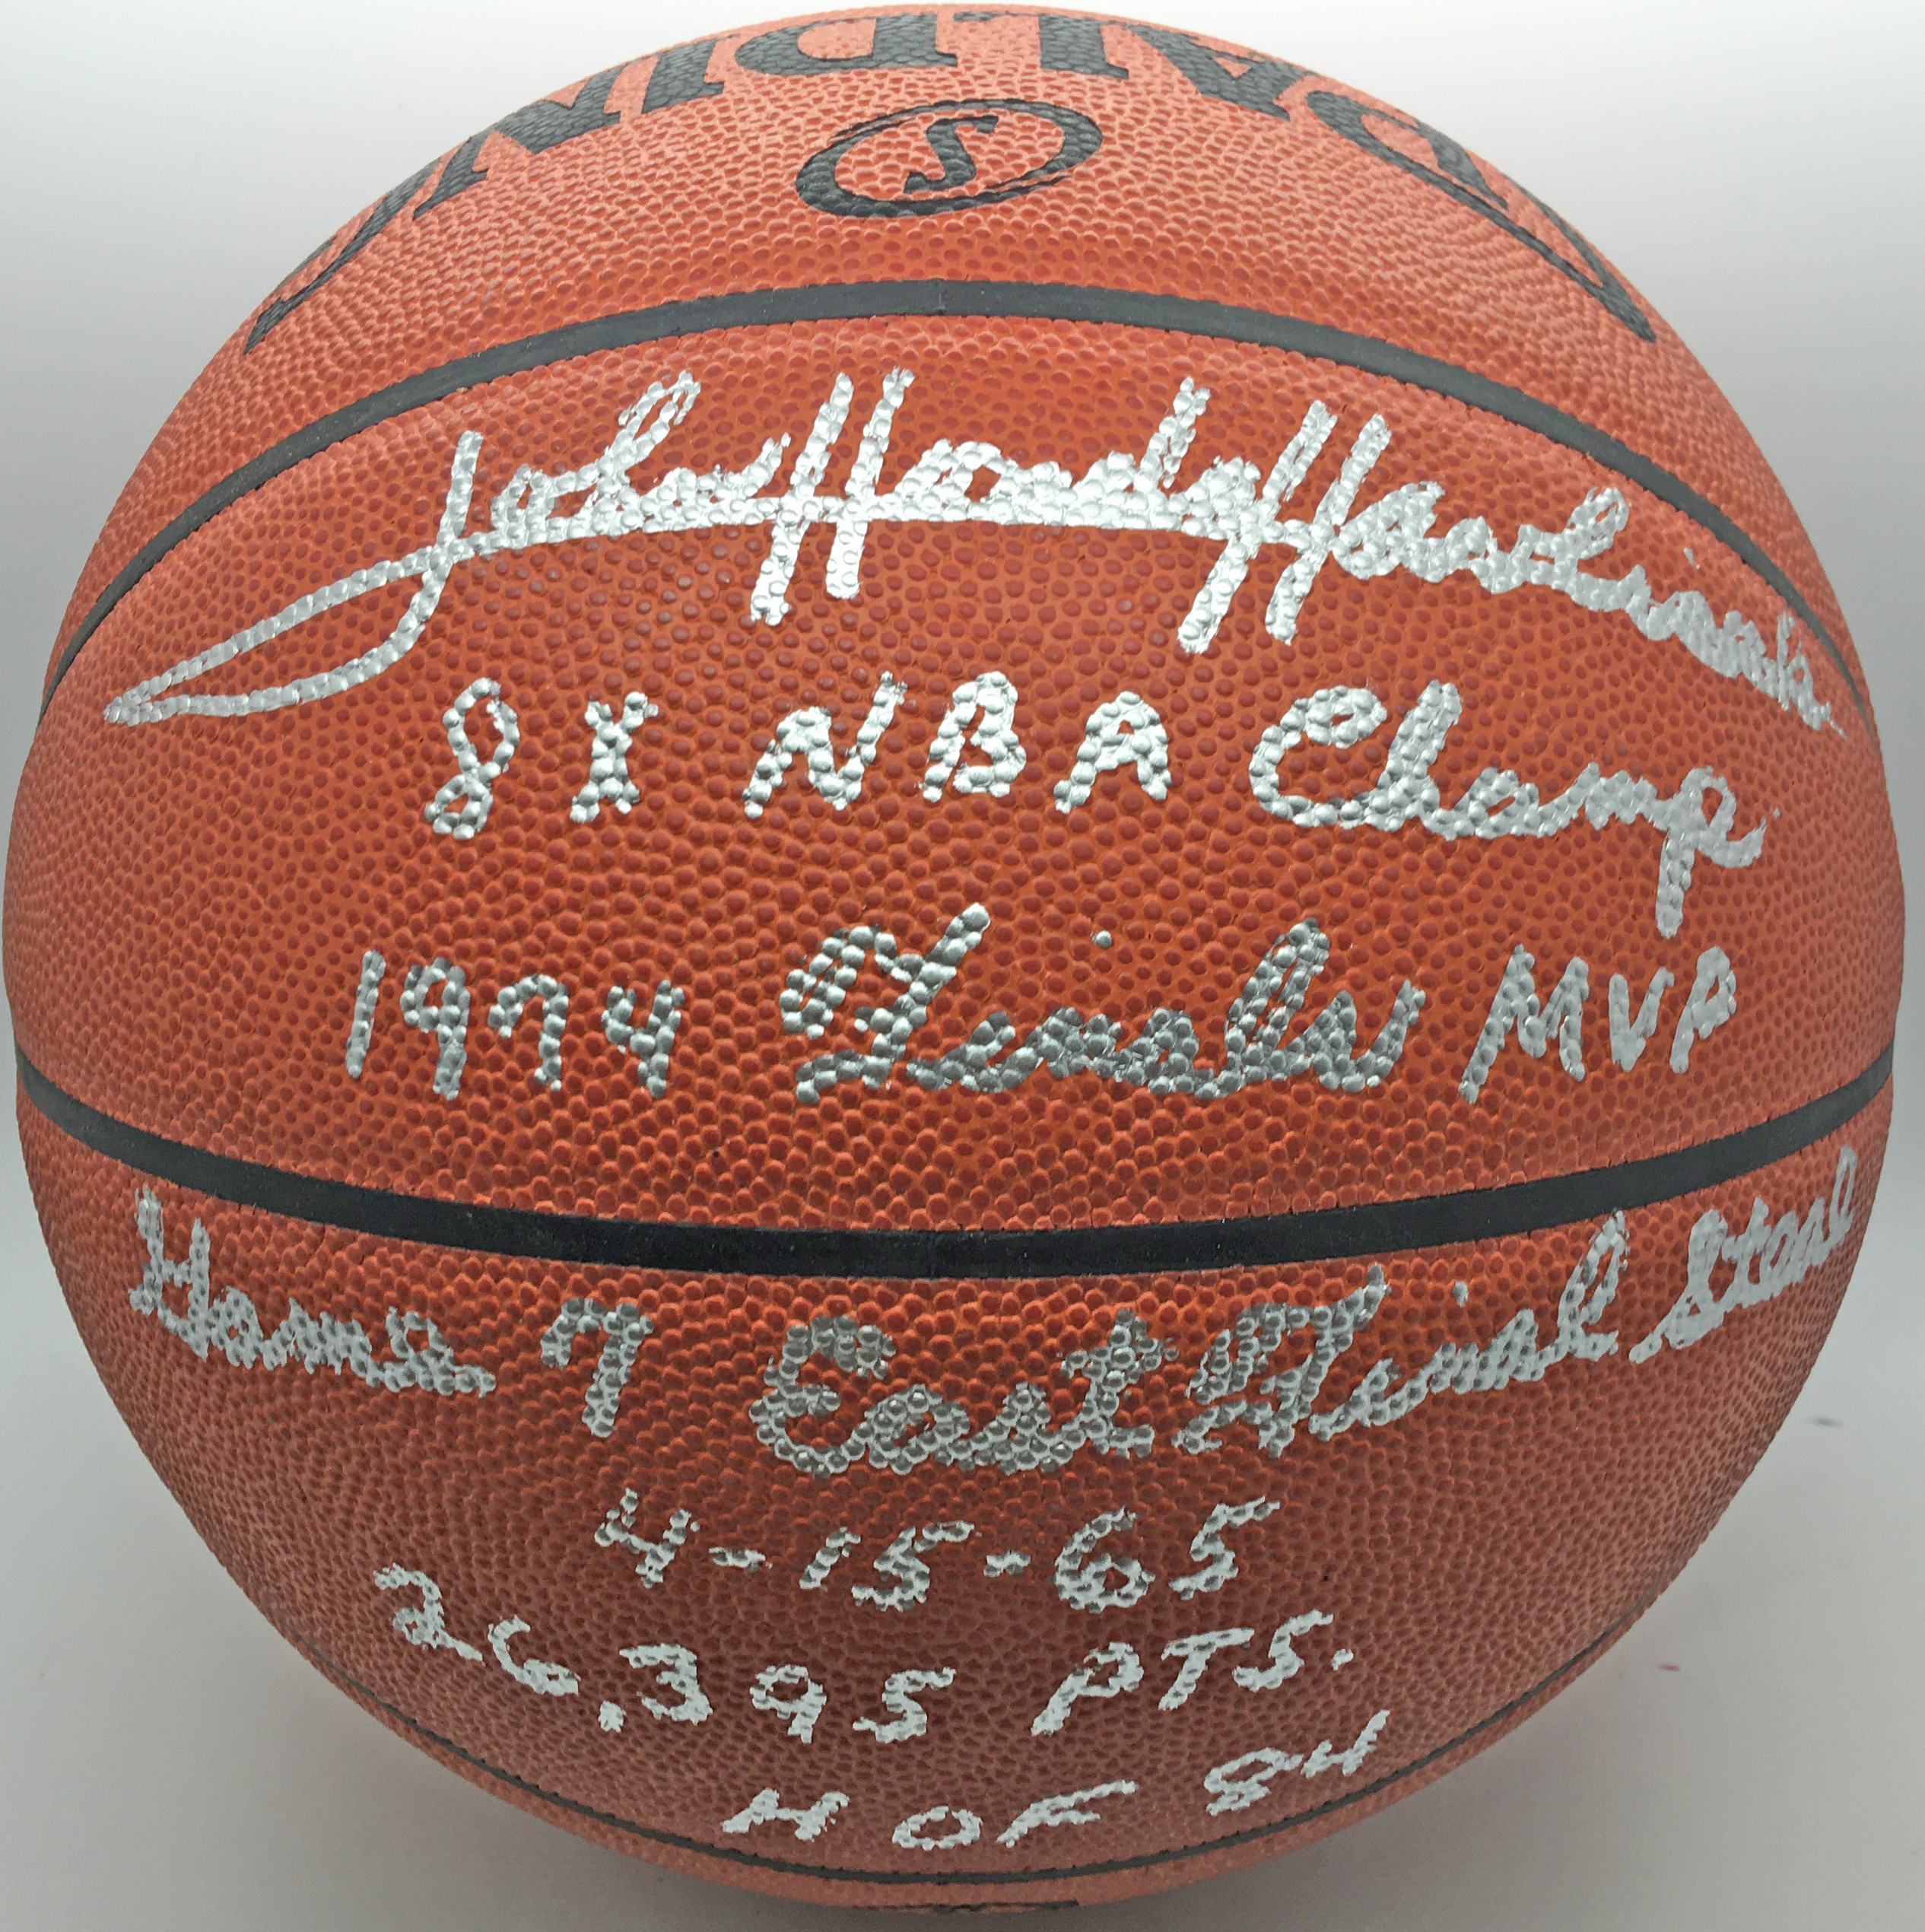 SPALDING
S
John "Hondo" Havlicek
8X NBA Champ
1974 Finals MVP
Game 7 East Final Steal
4-15-65
26,395 PTS.
HOF 84